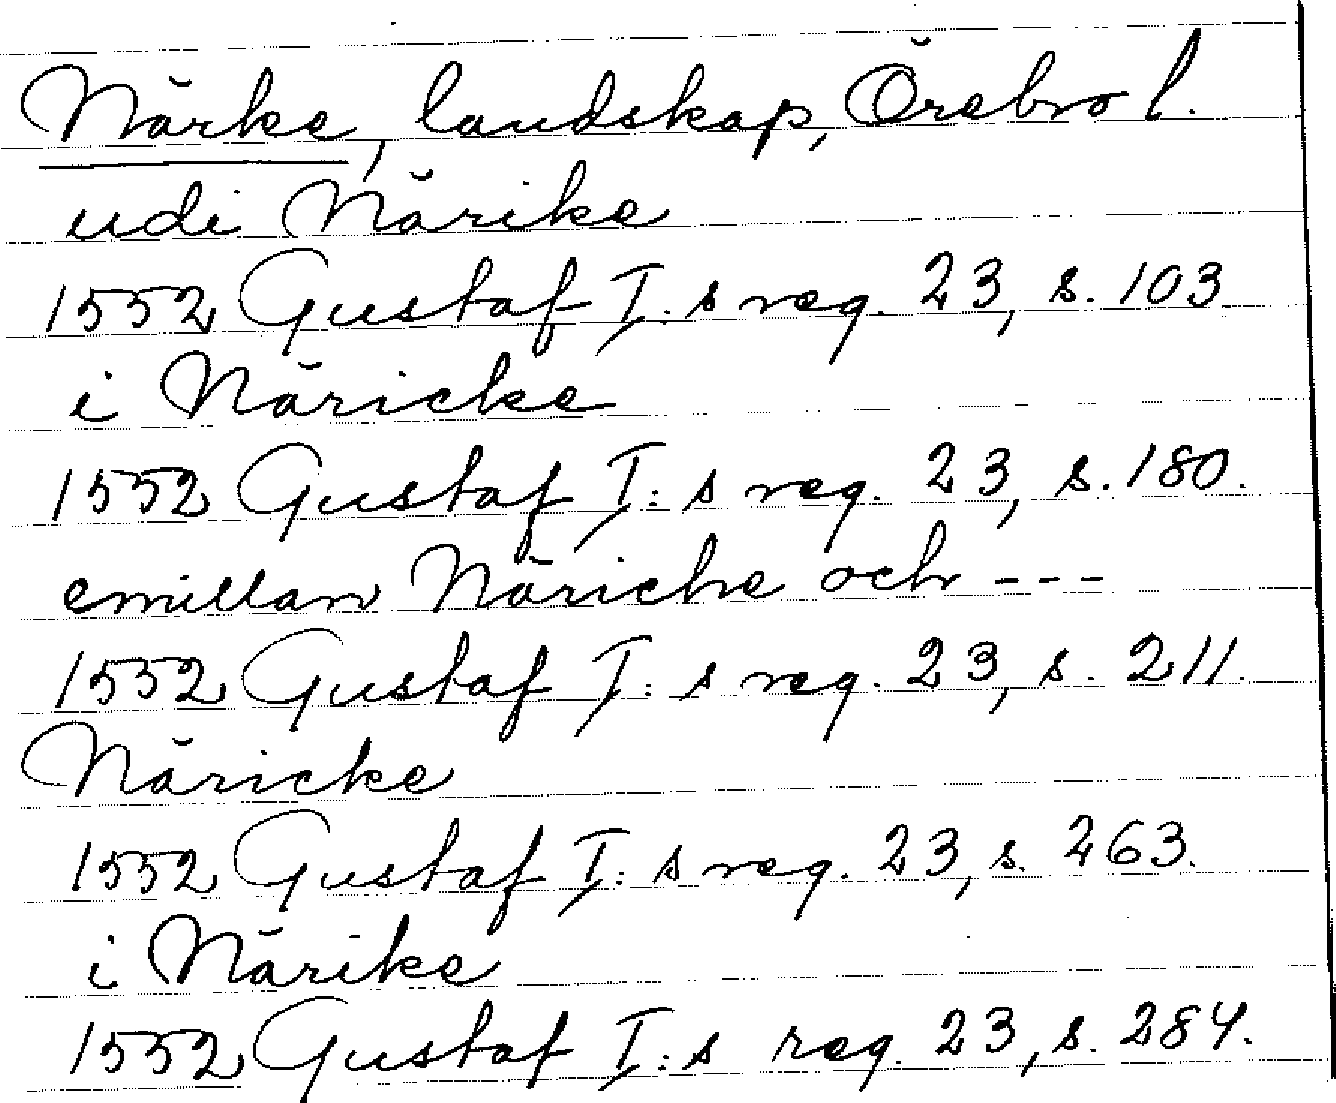 Närke, landskap, Örebro l.
udi Närike
1552 Gustaf I:s reg. 23, s. 103
i Näricke
1552 Gustaf I:s reg. 23, s. 180.
emillan Näricke och ---
1552 Gustaf I:s reg. 23, s. 211.
Näricke
1552 Gustaf I:s reg. 23, s. 263.
i Närike
1552 Gustaf I:s reg. 23, s. 284.